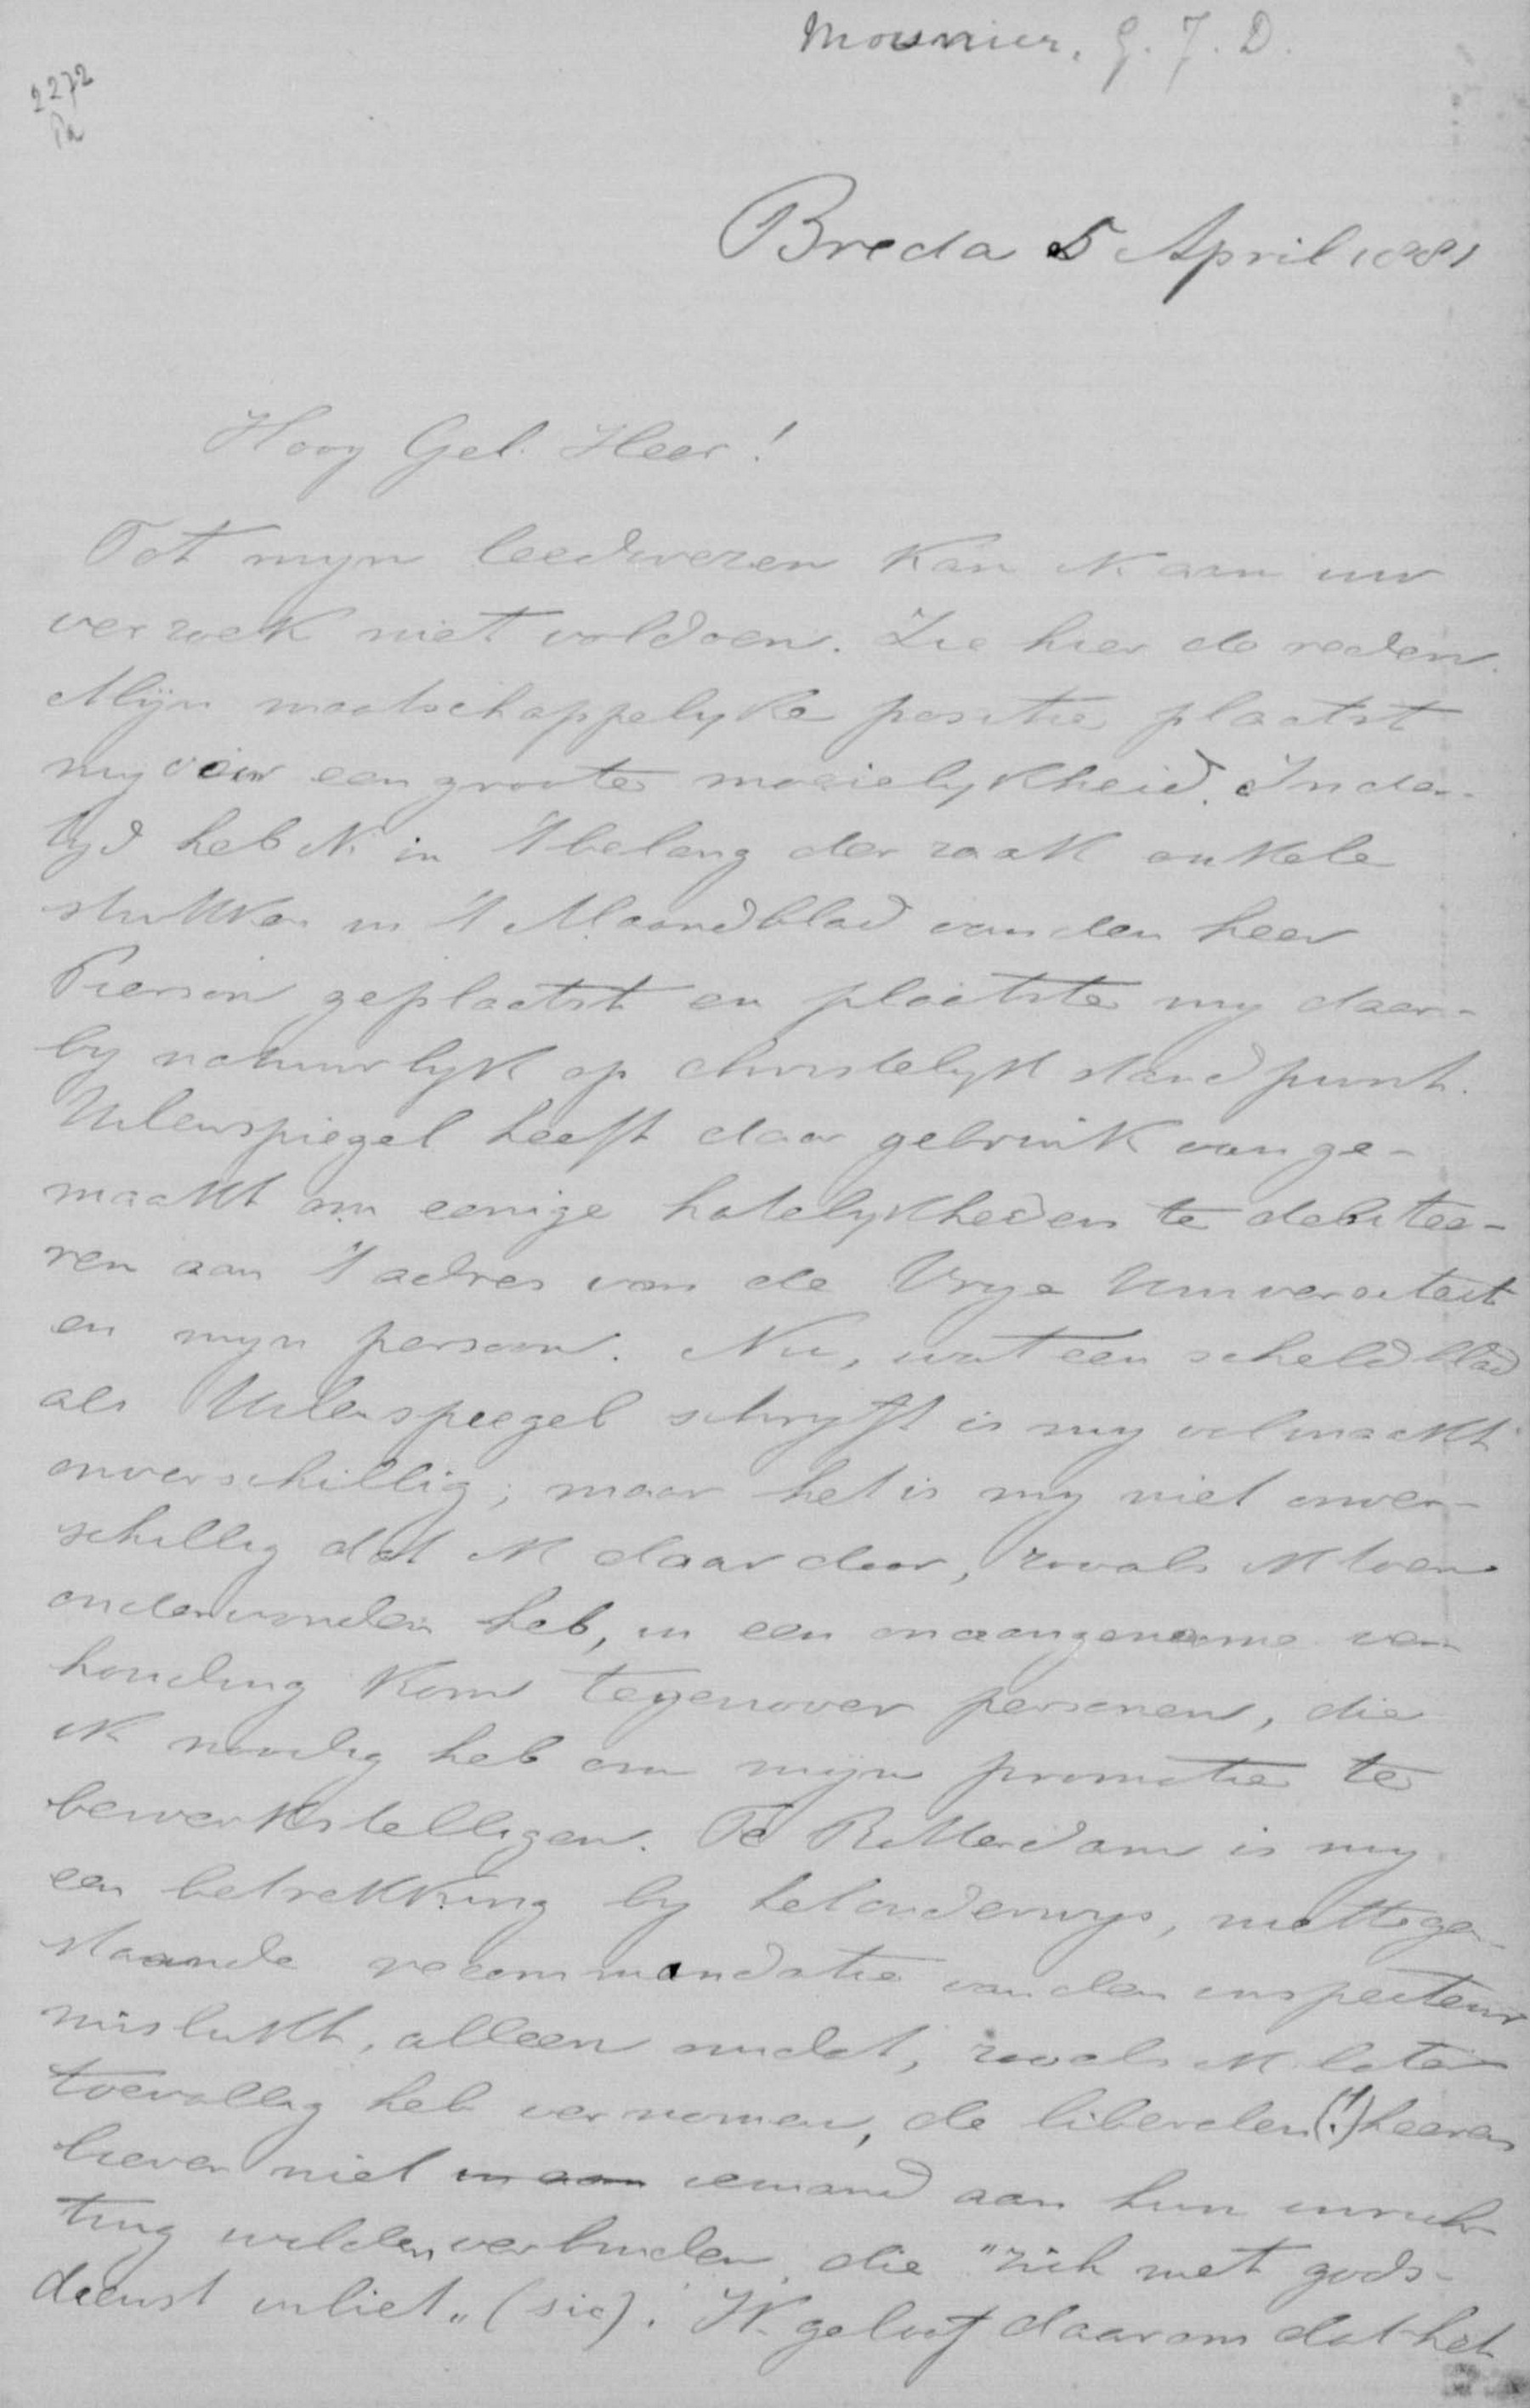 Mounier, G. J. D.
2272
Pa
Breda 5 April 1881
Hoog Gel. Heer!
Tot myn leedwezen kan ik aan uw
verzoek niet voldoen. Zie hier de reden.
Mijn maatschappelyke positie plaatst
my voor een groote moeielykheid. Inder-
tyd heb ik in 't belang der zaak enkele
stukken in 't Maandblad van den heer
Pierson geplaatst en plaatste my daar-
by natuurlyk op christelyk standpunt.
Uilenspiegel heeft daar gebruik van ge-
maakt om eenige hatelykheden te debitee-
ren aan 't adres van de Vrye Universiteit
en myn persoon. Nu, wat een scheldblad
als Uilenspiegel schryft is my volmaakt
onverschillig; maar het is my niet onver-
schillig dat ik daardoor, zooals ik toen
ondervonden heb, in een onaangename ver-
houding kom tegenover personen, die
ik noodig heb om mijn promotie te
bewerkstelligen. Te Rotterdam is my
een betrekking by het onderwys, niettegen-
staande recommandatie van den inspecteur
mislukt, alleen omdat, zooals ik later
toevallig heb vernomen, de liberalen (!) heeren
liever niet in aan iemand aan hun inrich-
ting wilden verbinden, die "zich met gods-
dienst inliet" (sic). Ik geloof daarom dat het